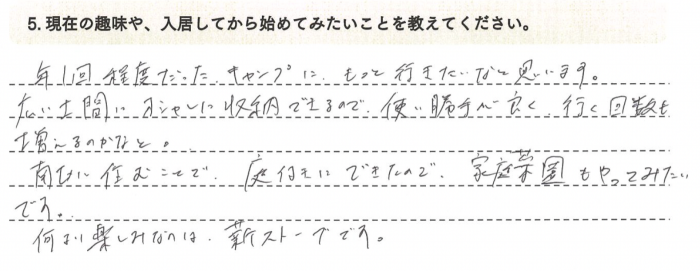 5. 現在の趣味や、入居してから始めてみたいことを教えてください。
年1回程度だった、キャンプに、もっと行きたいなと思います。
広い土間にオシャレに収納できるので、使い勝手が良く、行く回数も
増えるのかなと。
南むに住むことで、庭付きにできたので、家庭菜園もやってみたい
です。
何より楽しみなのは、薪ストーブです。